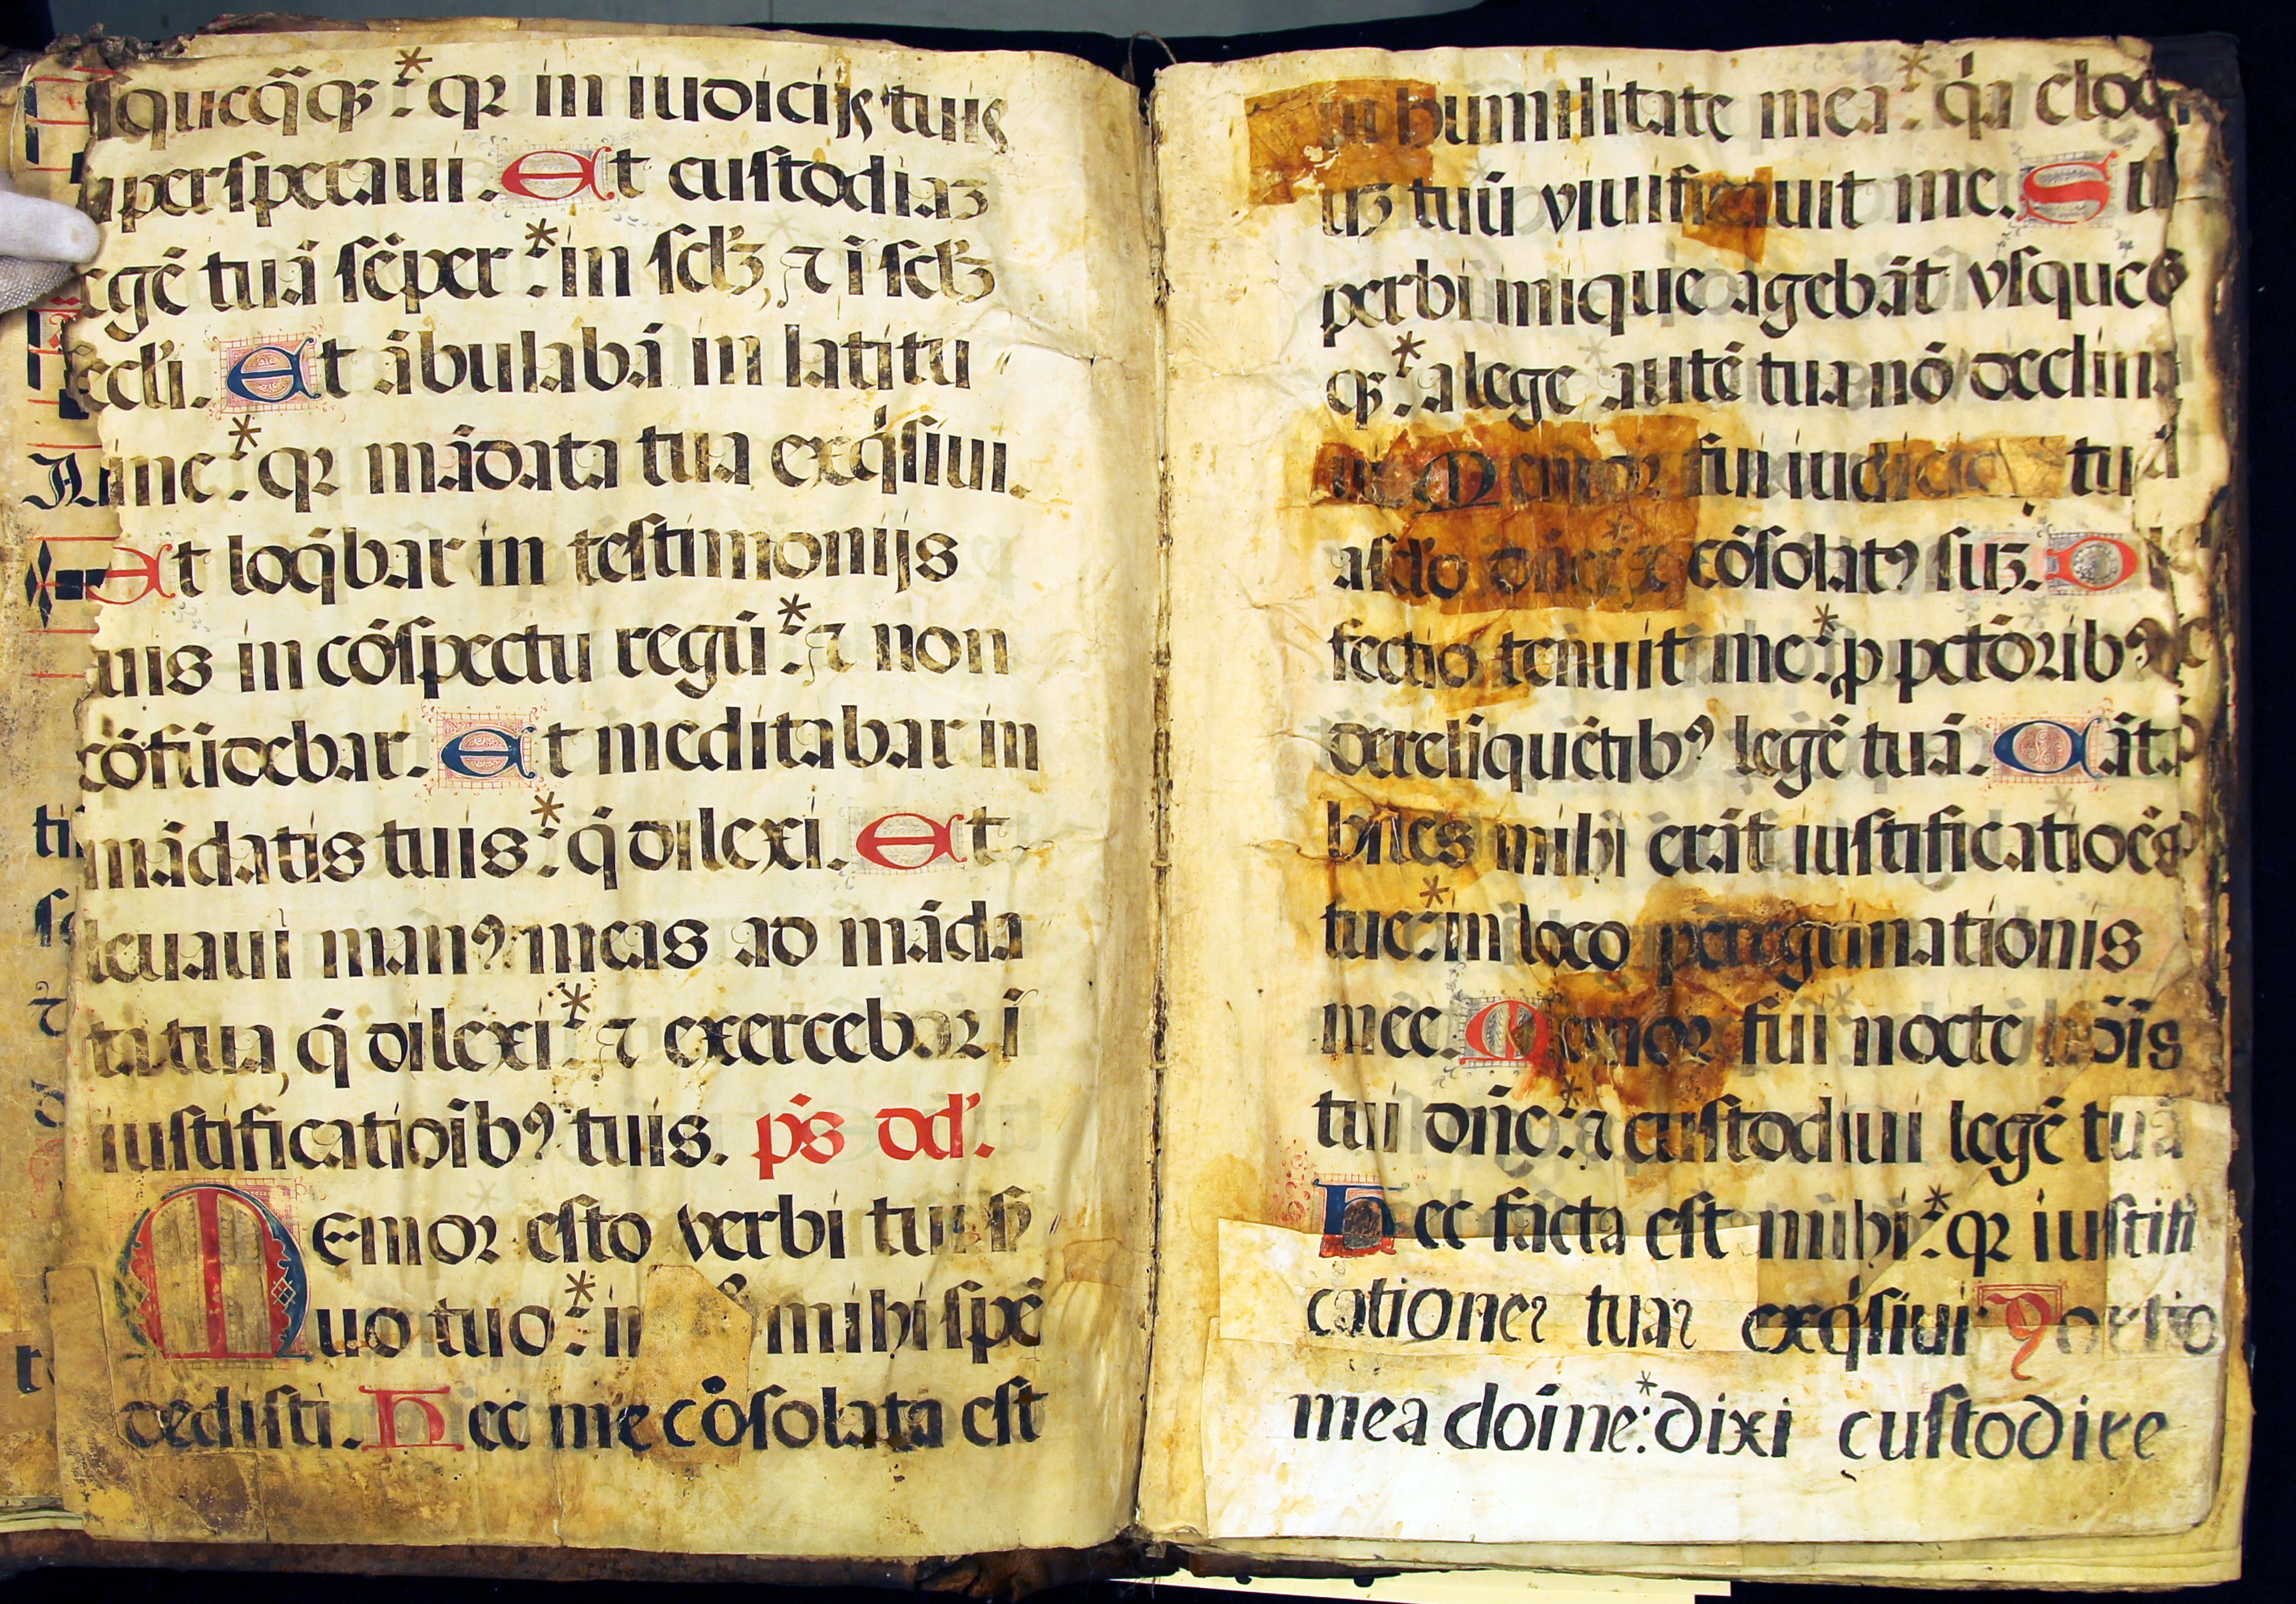 squeq̃q̃ꝫ: * qꝛ in iudicijs tuis
supersperaui. Et custodiaꝫ
legē tuā sēper: * in scl̃ꝫ, ⁊ ĩ scl̃ꝫ
scl̃i. Et ābulabā in latitu
dine: * qꝛ mādata tua exq̇siui.
Et loq̄bar in testimonijs
tuis in cōspectu regū: * ⁊ non
cōfūdebar. Et meditabar in
mādatis tuis: * q̄ dilexi. Et
leuaui manꝰ meas ad māda
ta tua, q̄ dilexi: * ⁊ exercebor ĩ
iustificatioibꝰ tuis. p̄s dd̃.
Memor esto verbi tui s̃
uo tuo: * in mihi spē
dedisti. Hec me cōsolata est
in humilitate mea: * q̇a eloq
iꝫ tuū viuificauit me. Su
perbi inique agebāt vsqueq̃
qꝫ: * a lege autē tua nō declina
ui. Memor fui iudicio tuā
a sc̃lo dñe: ⁊ cōsolatꝰ suꝫ. De
fectio tenuit me: * p pctōribꝰ
derelīquētibꝰ legē tuā. Cāta
biles mihi erāt iustificatiōes
tue: * in loco peregrinationis
mee. Memor fui nocte nōis
tui dñe: * ⁊ custodiui legē tuā
Hec facta est mihi: * qꝛ iustifi
cationes tuas exq̇siui Portio
mea doīne: * dixi custodire